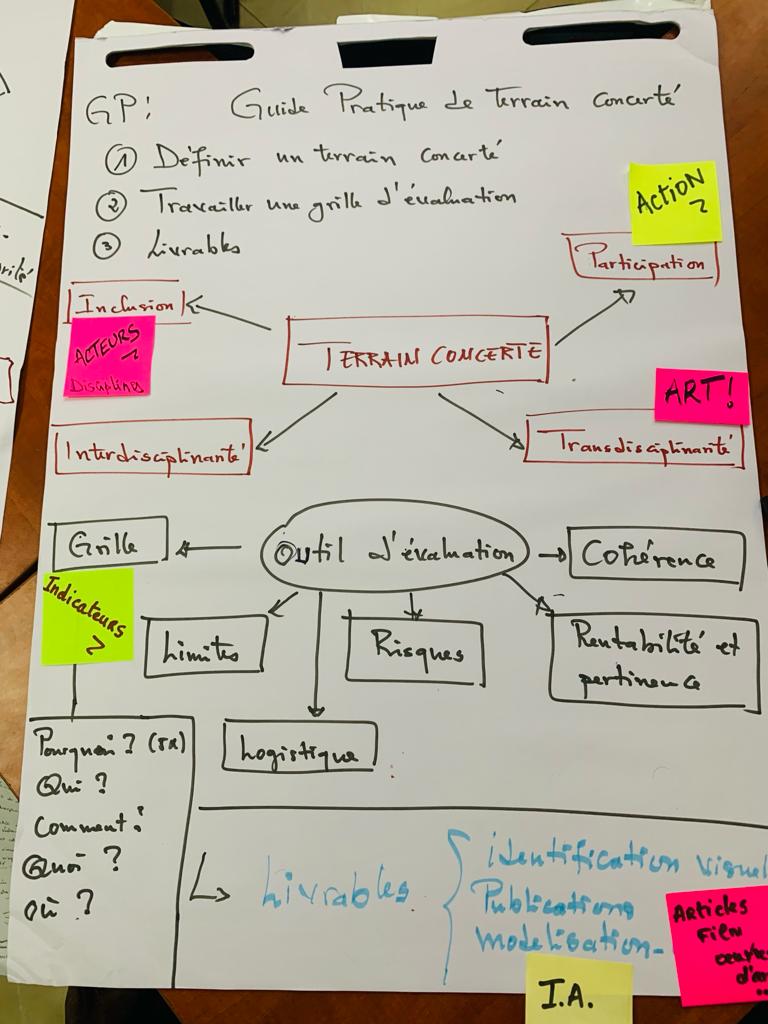 GP: Guide Pratique de Terrain concerté
① Définir un terrain concerté
② Travailler une grille d'évaluation
③ Livrables
ACTION ?
Participation
Inclusion
ACTEURS ?
Disciplines
TERRAIN CONCERTÉ
ART!
Interdisciplinarité
Transdisciplinarité
Grille
Outil d'évaluation
Cohérence
Indicateurs ?
Limites
Risques
Rentabilité et
pertinence
Logistique
Pourquoi ? (5x)
Qui ?
Comment ?
Quoi ?
Où ?
Livrables
identification visuel
Publications
modelisation
ARTicles
Film
d'ar
I.A.